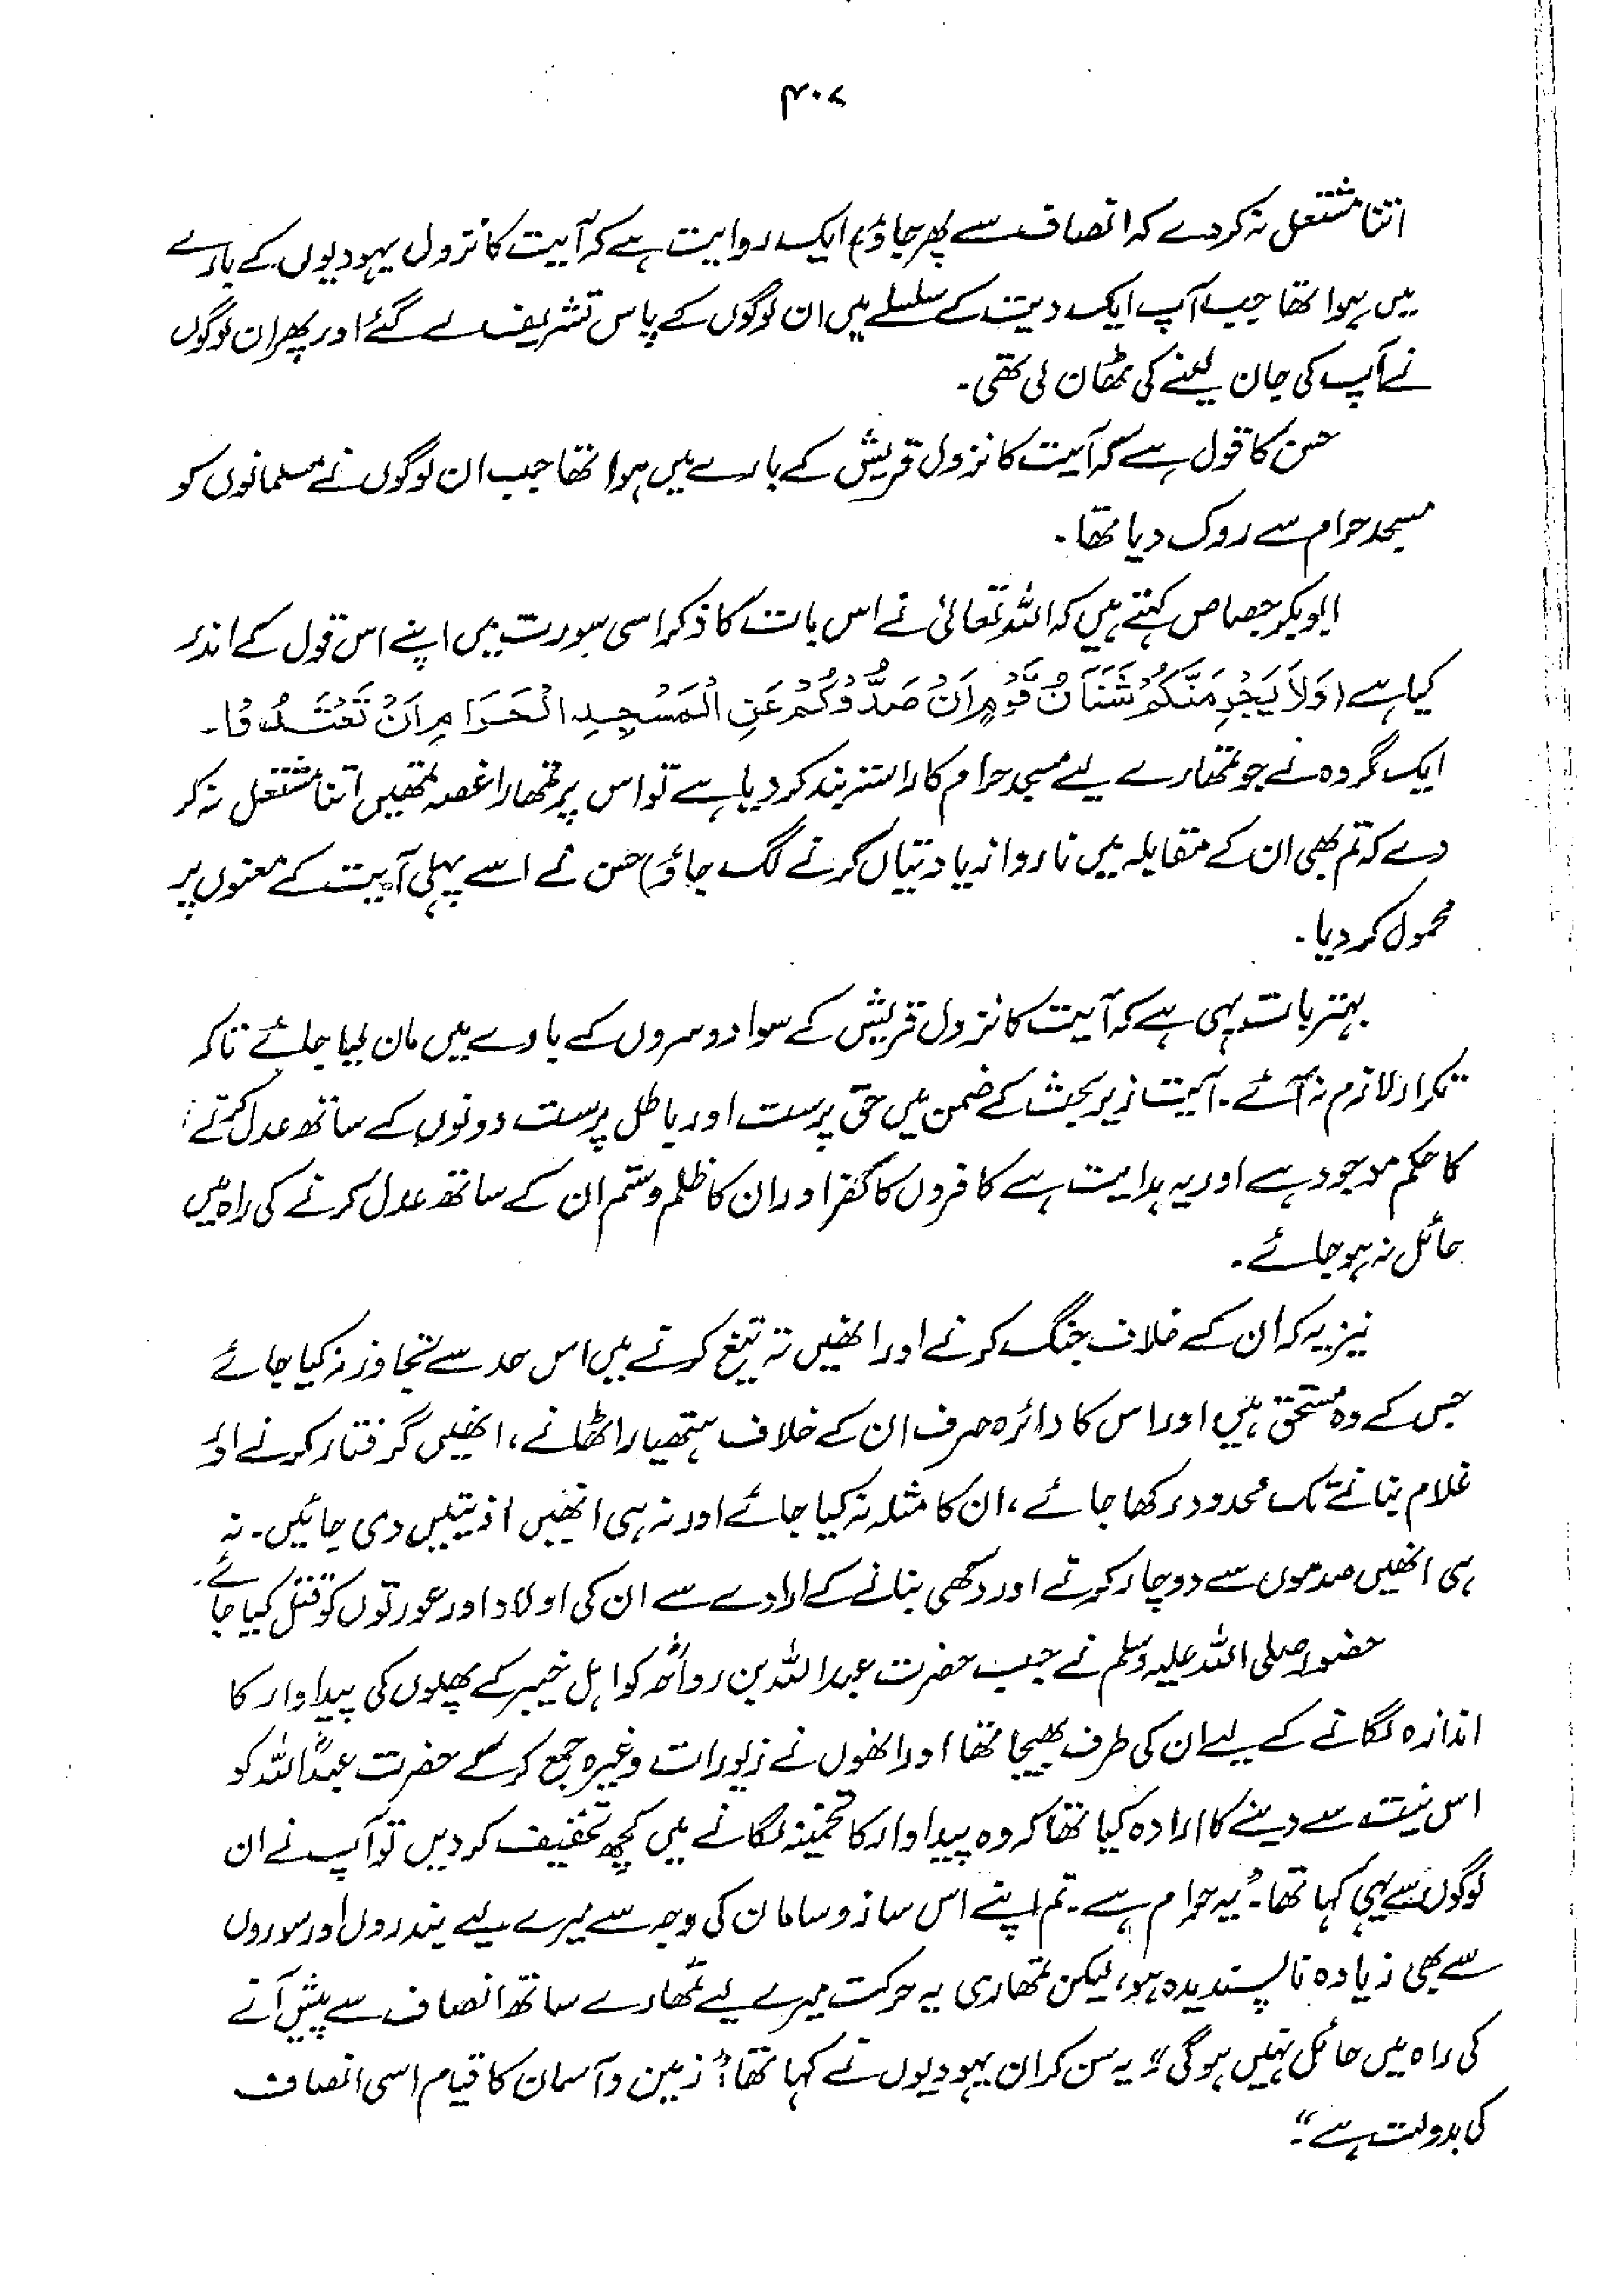 ۴۰۷
اتنا مشتعل نہ کر دے کہ انصاف سے پھر جاؤ) ایک روایت ہے کہ آیت کا نزول یہودیوں کے بارے
میں ہوا تھا جب آپ ایک دیت کے سلسلے میں ان لوگوں کے پاس تشریف لے گئے اور پھر ان لوگوں
نے آپ کی جان لینے کی ٹھان لی تھی۔
حسن کا قول ہے کہ آیت کا نزول قریش کے بارے میں ہوا تھا جب ان لوگوں نے مسلمانوں کو
مسجد حرام سے روک دیا تھا۔
ابوبکر جصاص کہتے ہیں کہ اللہ تعالیٰ نے اس بات کا ذکر اسی سورت میں اپنے اس قول کے اندر
کیا ہے (وَلَا يَجْرِمَنَّكُمْ شَنَاٰنُ قَوْمٍ اَنْ صَدُّوْكُمْ عَنِ الْمَسْجِدِ الْحَرَامِ اَنْ تَعْتَدُوْا۔
ایک گروہ نے جو تمھارے لیے مسجد حرام کا راستہ بند کر دیا ہے تو اس پر تمھارا غصہ تمھیں اتنا مشتعل نہ کر
دے کہ تم بھی ان کے مقابلہ میں ناروا زیادتیاں کرنے لگ جاؤ) حسن نے اسے پہلی آیت کے معنوں پر
محمول کر دیا۔
بہتر بات یہی ہے کہ آیت کا نزول قریش کے سوا دوسروں کے بارے میں مان لیا جائے تاکہ
تکرار لازم نہ آئے۔ آیت زیر بحث کے ضمن میں حق پرست اور باطل پرست دونوں کے ساتھ عدل کرنے
کا حکم موجود ہے اور یہ ہدایت ہے کافروں کا کفر اور ان کا ظلم و ستم ان کے ساتھ عدل کرنے کی راہ میں
حائل نہ ہو جائے۔
نیز یہ کہ ان کے خلاف جنگ کرنے اور انھیں تہ تیغ کرنے میں اس حد سے تجاوز نہ کیا جائے
جس کے وہ مستحق ہیں اور اس کا دائرہ صرف ان کے خلاف ہتھیار اٹھانے، انھیں گرفتار کرنے اور
غلام بنانے تک محدود رکھا جائے، ان کا مثلہ نہ کیا جائے اور نہ ہی انھیں اذیتیں دی جائیں۔ نہ
ہی انھیں صدموں سے دوچار کرنے اور دکھی بنانے کے ارادے سے ان کی اولاد اور عورتوں کو قتل کیا جائے۔
حضور صلی اللہ علیہ وسلم نے جب حضرت عبداللہ بن رواحہؓ کو اہل خیبر کے پھلوں کی پیداوار کا
اندازہ لگانے کے لیے ان کی طرف بھیجا تھا اور انھوں نے زیورات وغیرہ جمع کر کے حضرت عبداللہؓ کو
اس نیت سے دینے کا ارادہ کیا تھا کہ وہ پیداوار کا تخمینہ لگانے میں کچھ تخفیف کر دیں تو آپ نے ان
لوگوں سے یہی کہا تھا۔ "یہ حرام ہے۔ تم اپنے اس ساز و سامان کی وجہ سے میرے لیے بندروں اور سوروں
سے بھی زیادہ ناپسندیدہ ہو، لیکن تمھاری یہ حرکت میرے لیے تمھارے ساتھ انصاف سے پیش آنے
کی راہ میں حائل نہیں ہو گی" یہ سن کر ان یہودیوں نے کہا تھا: "زمین و آسمان کا قیام اسی انصاف
کی بدولت ہے"۔